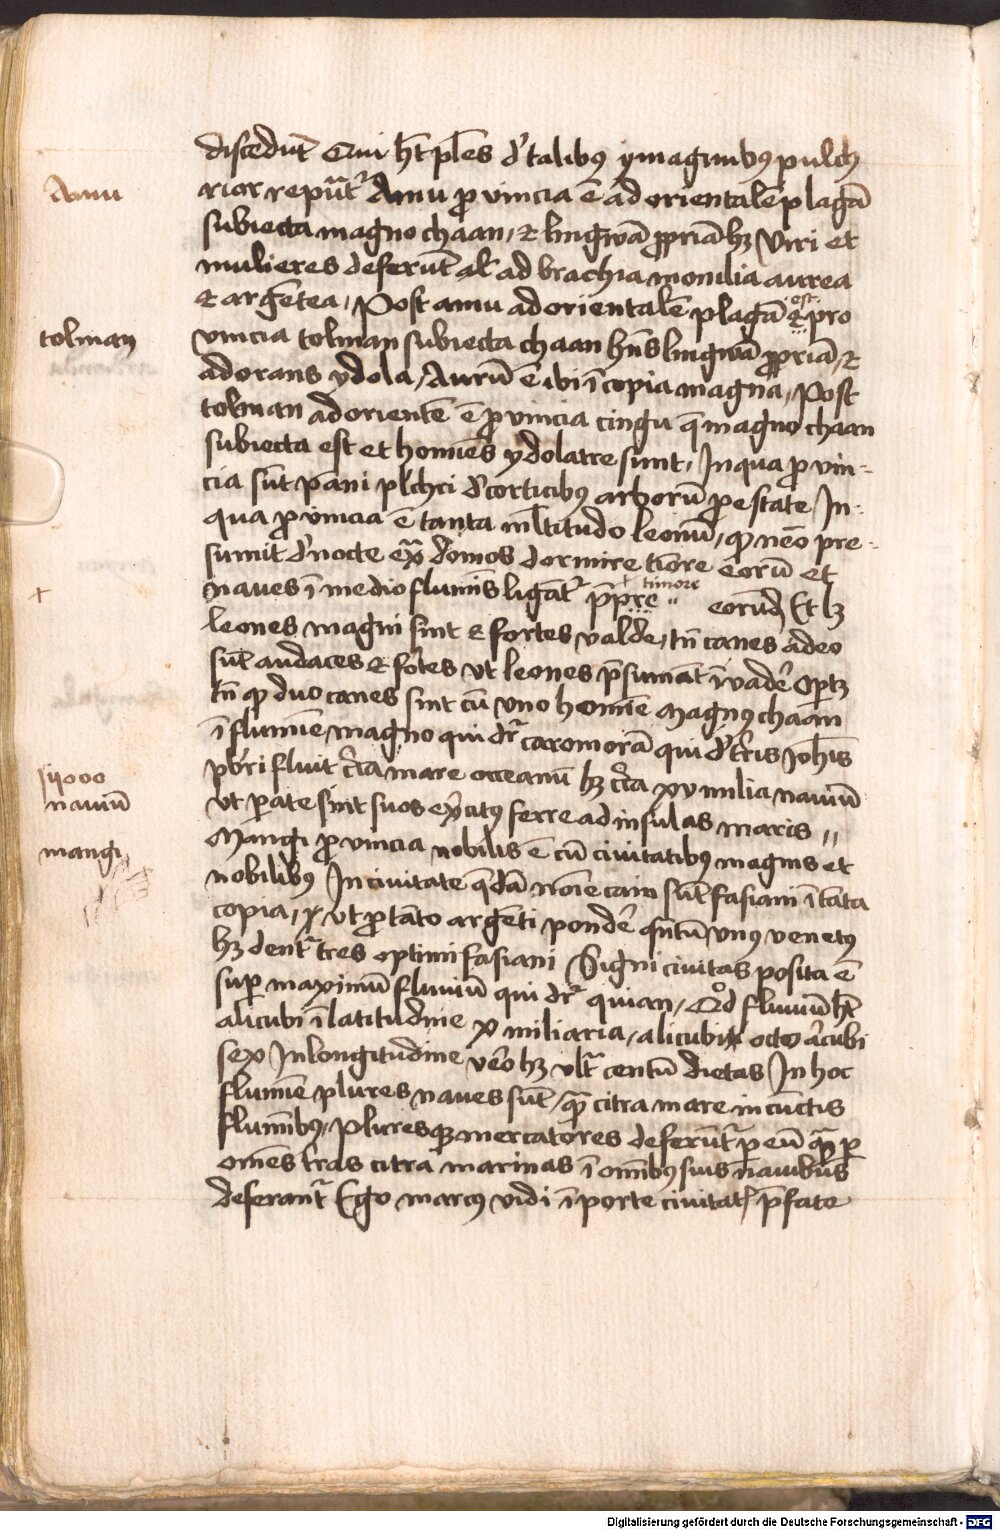 discedūt Qui hēt ples d' talibus ymaginibus pulch
rior reputat' Amu provincia ē ad orientalē plagā
Amu
subiecta magno chaan, et lingwā propriā hz Viri et
mulieres deferūt al' ad brachia monilia aurea
et argētea, Post amu ad orientalē plagā est pro
tolman
vincia tolman subiecta chaan hn̄s lingwā propriā, et
adorans ydola, Aurū ē ibi ī copia magna, Post
tolman ad orientē ē provincia cingu q̄ magno chaan
subiecta est et homīes ydolatre sunt, In qua provin-
cia sūt pāni plchri d' corticibus arborū pro estate In-
qua provincia ē tanta ml'titudo leonū, qz nēo pre-
sumit d' nocte ext̄ domos dormire tīore eorū et
naves ī medio flumīs ligāt' p̄pre timore eorūd Et lz
leones magni sint et fortes valde, tn̄ canes adeo
sūt audaces et fōtes ut leones p̄sumāt īvader' Optz
tn̄ qz duo canes sint cū uno homīe Magnus chaam
ī flumīe magno qui dr' caromorā qui d' t'ris Joh̄is
pb'ri fluit c'ca mare occeanū hz c'ca xv milia naviū
15000
naviū
ut parate sint suos exercitus ferre ad insulas maris
mangi
Mangi provincia nobilis ē cū civitatibus magnis et
nobilibus In civitate q̄dā noīe caim sūt fasiani ī tāta
copia, ut pro tāto argēti ponder' q̄ntū unus venetus
hz dent' tres optimi fasiani Signi civitas posita ē
sup maximū fluviū qui dr' quian, Qd fluviū hēt
alicubi ī latitudine x miliaria, alicubi octo al'cubi
sex In longitudine v'o hz ult' centū dietas In hoc
flumīe plures naves sūt, quā citra mare in cūctis
flumībus, Pluresqz mercatores deferūt' p eū quā p
omēs t'ras citra marinas ī omībus suis navibus
deferant' Ego marcus vidi ī porte civitat' p̄fate
Digitalisierung gefördert durch die Deutsche Forschungsgemeinschaft - DFG